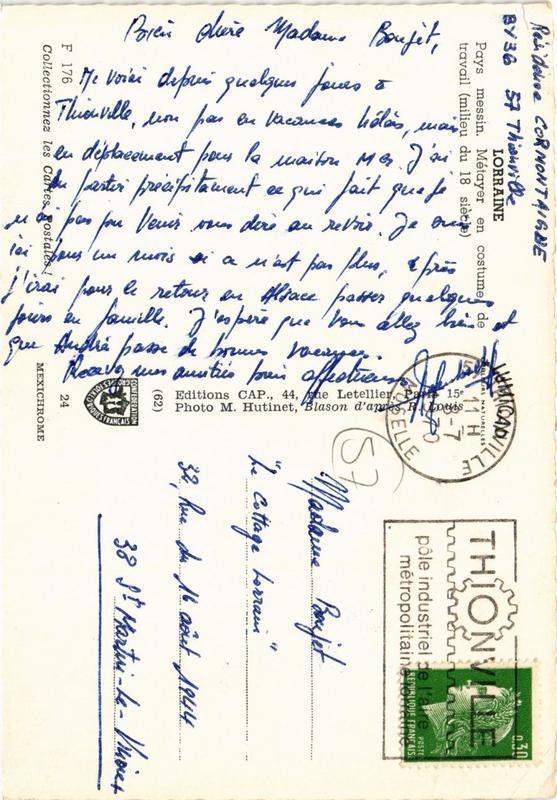 Résidence CORMONTAIGNE
BY36 57 Thionville
Bien chère Madame Boujet,
Me voici depuis quelques jours à
Thionville, non pas en vacances hélas, mais
en déplacement pour la maison Mer. J'ai
du partir précipitamment ce qui fait que je
n'ai pas pu venir vous dire au revoir. Je suis
ici pour un mois si ce n'est pas plus, après
j'irai pour le retour en Alsace passer quelques
jours en famille. J'espère que vous allez bien et
que André passe de bonnes vacances.
Recevez mes amitiés bien affectueuses
LORRAINE
Pays messin. Métayer en costume de
travail (milieu du 18 siècle)
F 176
Collectionnez les Cartes postales !
MEXICHROME
24
(62) Editions CAP., 44, rue Letellier, Paris 15e
Photo M. Hutinet, Blason d'après R. Louis
THIONVILLE
11 H
8-7
MOSELLE
57
Madame Boujet
"Le Cottage Lorrain"
32, rue du 16 août 1944
38 St Martin-le-Vinoux
THIONVILLE
pôle industriel de l'aire
métropolitaine lorraine
REPUBLIQUE FRANÇAISE
POSTES
0,30